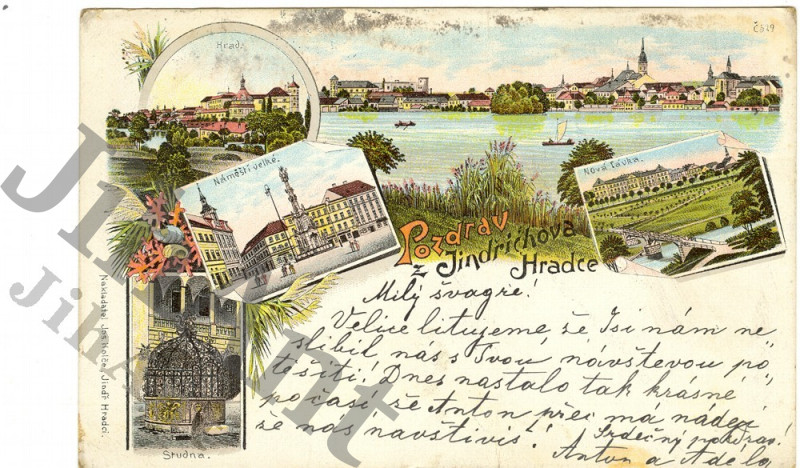 Hrad.
Č 529
Náměstí velké.
Nová Lávka.
Pozdrav
z Jindřichova
Hradce
Studna.
Nakladatel Jos. Holče, Jindř. Hradci.
Milý švagře!
Velice litujeme že Jsi nám ne„
slíbil nás s Tvou návštevou po„
těšiti! Dnes nastalo tak krásné
počasí že Anton přec má náději
že nás navštíviš! Srdečný pozdrav!
Anton a Adéla
JihAnt
JihAnt